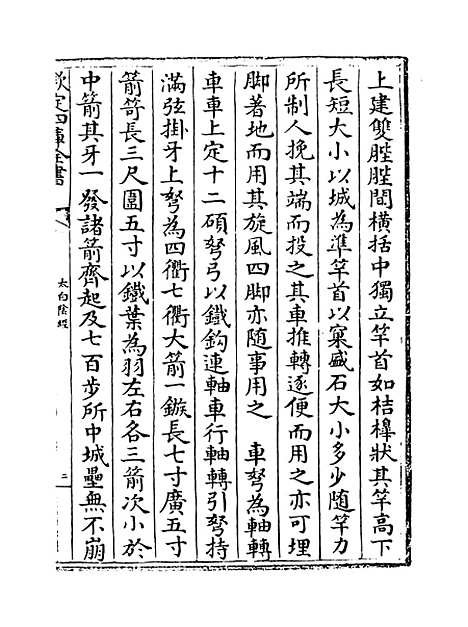 上建雙陛陛間橫括中獨立竿首如桔槹狀其竿高下
長短大小以城為準竿首以窠盛石大小多少隨竿力
所制人挽其端而投之其車推轉逐便而用之亦可埋
脚著地而用其旋風四脚亦随事用之　車弩為軸轉
車車上定十二碩弩弓以鐵鈎連軸車行軸轉引弩持
滿弦掛牙上弩為四衢七衢大箭一鏃長七寸廣五寸
箭笴長三尺圍五寸以鐵葉為羽左右各三箭次小於
中箭其牙一發諸箭齊起及七百步所中城壘無不崩
欽定四庫全書
太白陰經
二